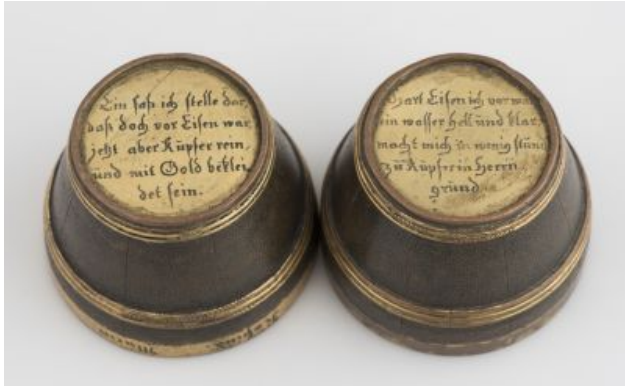 Ein faß ich stelle dar,
daß doch vor Eisen war
jetzt aber Kupfer rein,
und mit Gold beklei
det fein.
Hart Eisen ich vor war
ein wasser hell und klar,
macht mich in wenig stund
zu Kupfer in Herrn
grund.